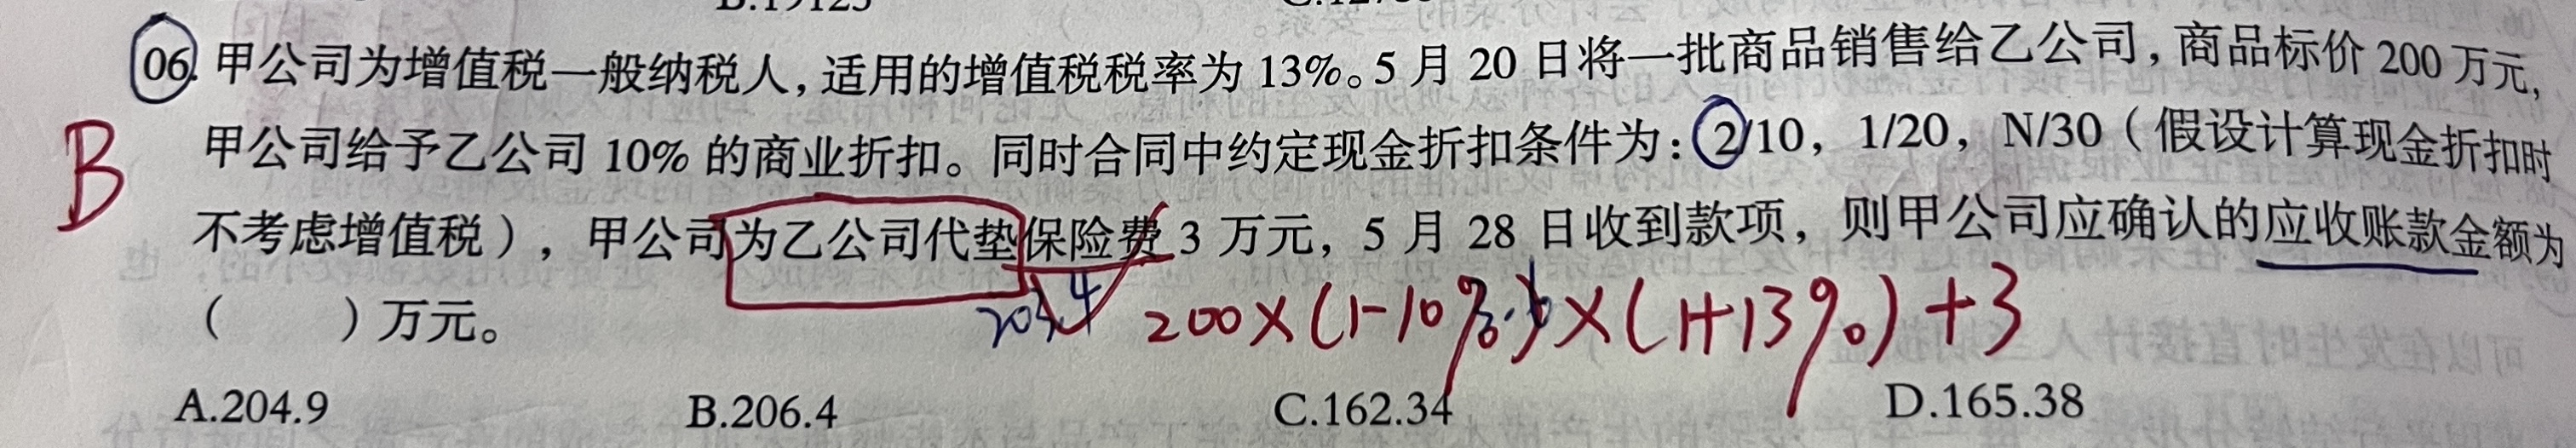 06. 甲公司为增值税一般纳税人，适用的增值税税率为 13%。5 月 20 日将一批商品销售给乙公司，商品标价 200 万元，
甲公司给予乙公司 10% 的商业折扣。同时合同中约定现金折扣条件为：2/10，1/20，N/30（假设计算现金折扣时
B
不考虑增值税），甲公司为乙公司代垫保险费 3 万元，5 月 28 日收到款项，则甲公司应确认的应收账款金额为
（　　）万元。
200×(1-10%)×(1+13%)+3
A.204.9 B.206.4 C.162.34 D.165.38